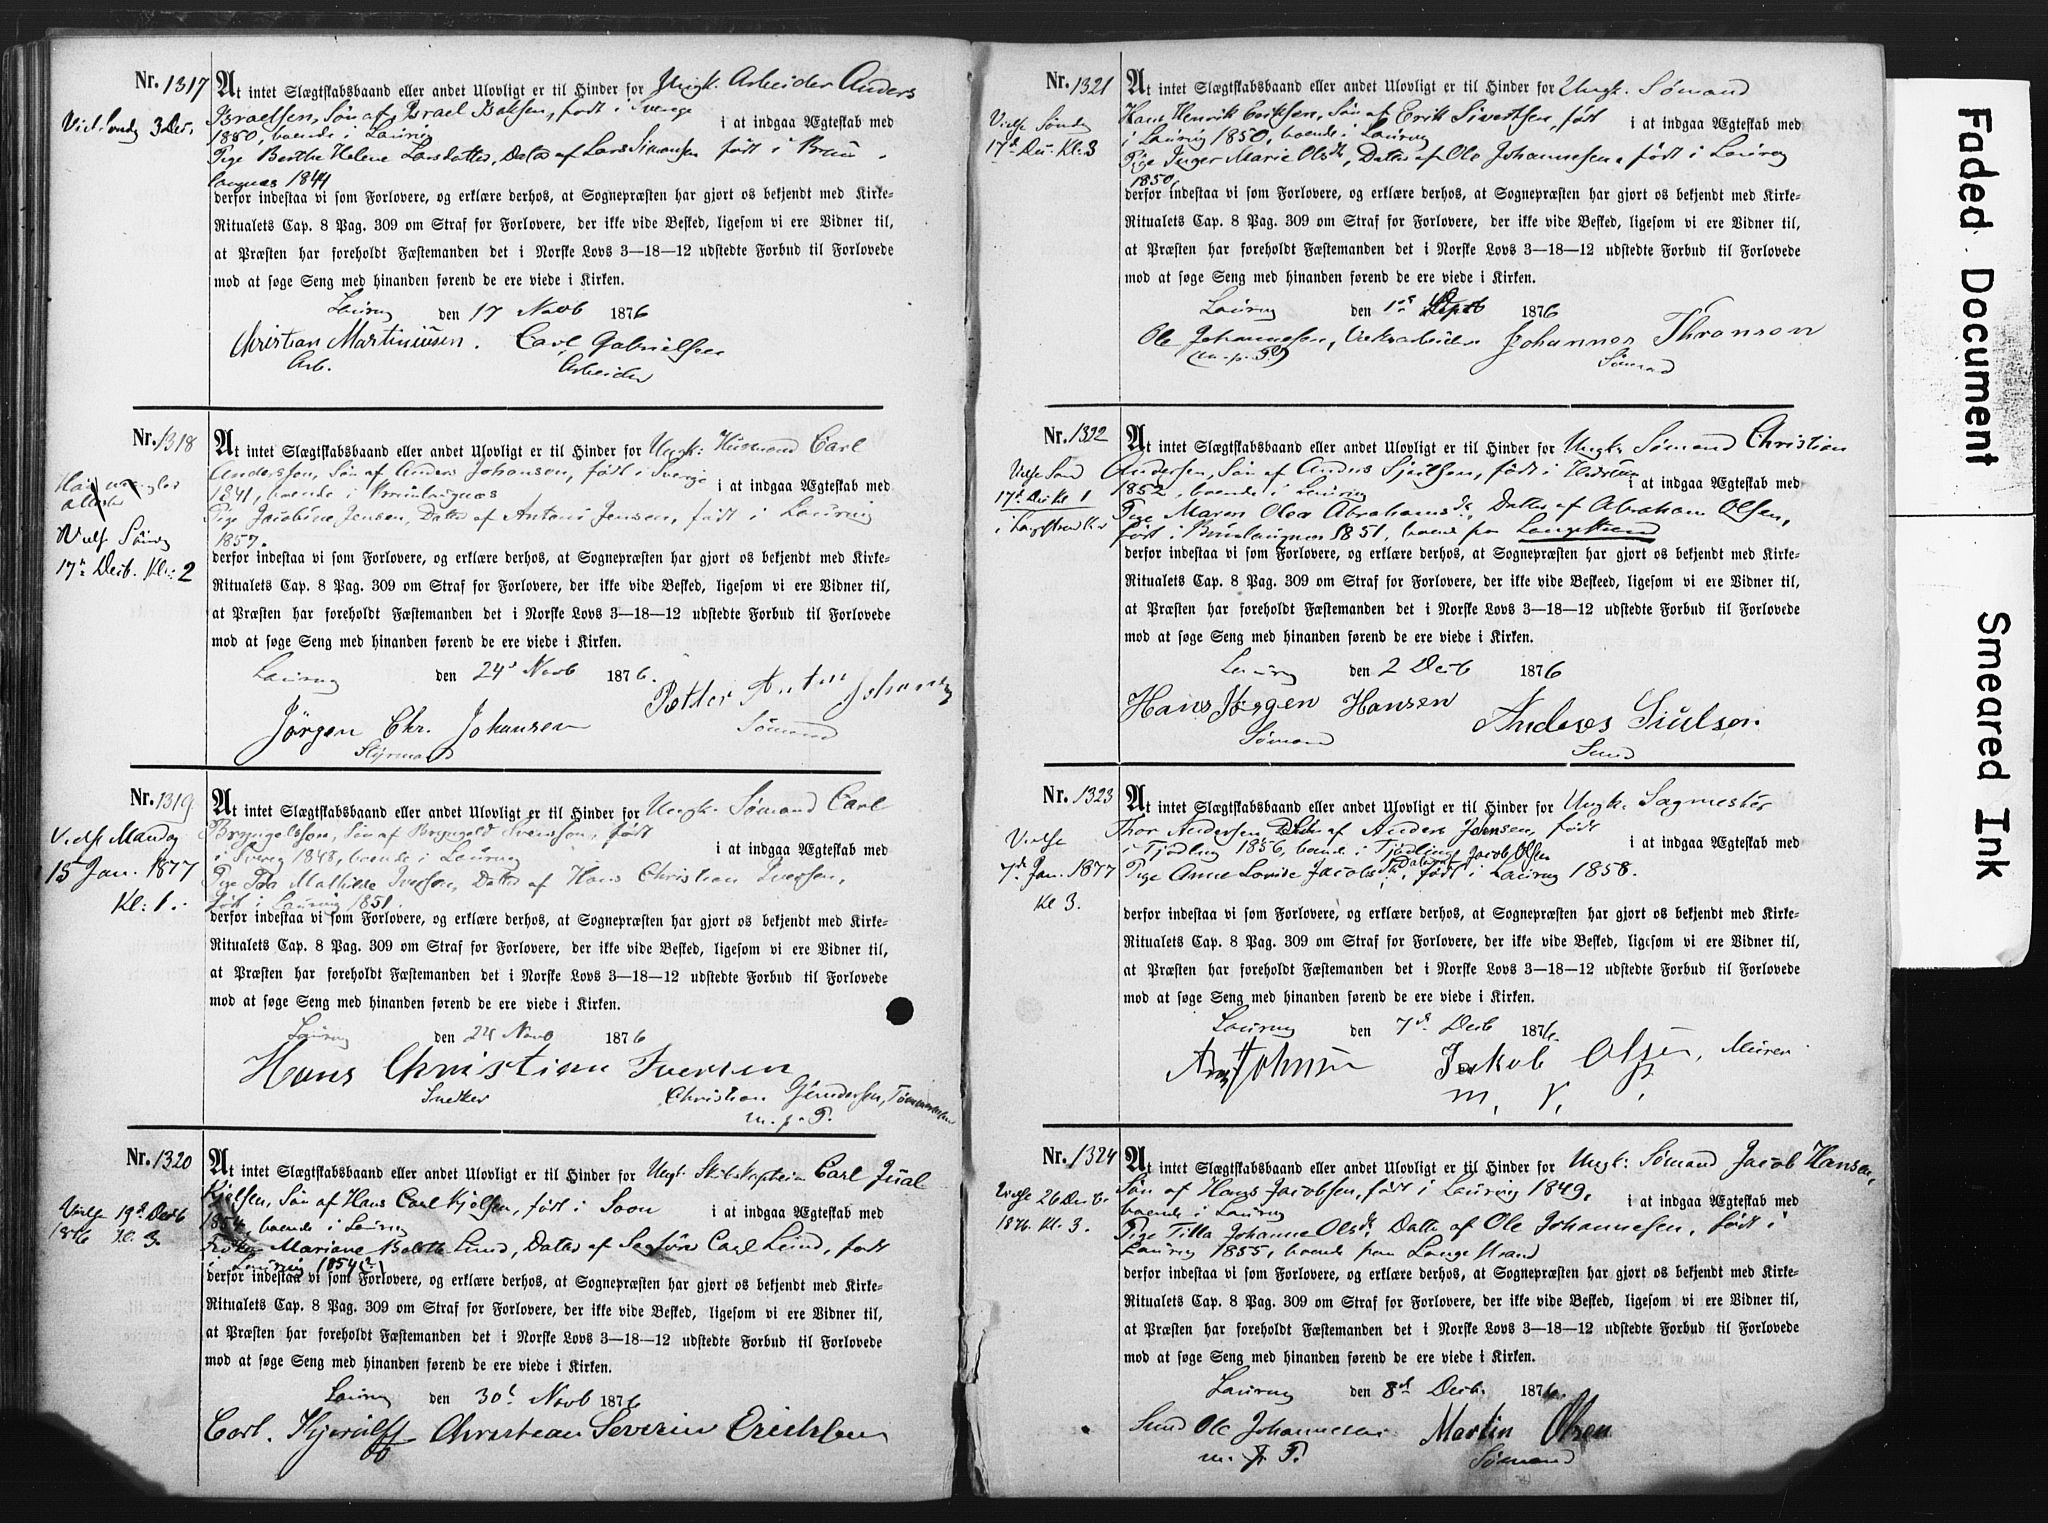 Nr. 1317
Viels. Søndg 3 Dec.
At intet Slægtskabsbaand eller andet Ulovligt er til Hinder for Ungk. Arbeider Anders
Israelsen, Søn af Israel Isaksen, født i Sverige
i at indgaa Ægteskab med
1850, boende i Laurvig
Pige Berthe Helene Larsdatter, Datter af Lars Simonsen født i Brun-
langnæs 1844
derfor indestaa vi som Forlovere, og erklære derhos, at Sognepræsten har gjort os bekjendt med Kirke-
Ritualets Cap. 8 Pag. 309 om Straf for Forlovere, der ikke vide Besked, ligesom vi ere Vidner til,
at Præsten har foreholdt Fæstemanden det i Norske Lovs 3—18—12 udstedte Forbud til Forlovede
mod at søge Seng med hinanden førend de ere viede i Kirken.
Laurvig den 17 Novb 1876
Christian Martiniusen. Carl Gabrielsen
Arb. Arbeider
Nr. 1318
Vielse Søndg
17de Decb. Kl: 2
At intet Slægtskabsbaand eller andet Ulovligt er til Hinder for Ungk: Husmand Carl
Anderssen, Søn af Anders Johanson, født i Sverige
i at indgaa Ægteskab med
1841, boende i Brunlangnæs
Pige Jacobine Jensen, Datter af Antoni Jensen, født i Laurvig
1857.
derfor indestaa vi som Forlovere, og erklære derhos, at Sognepræsten har gjort os bekjendt med Kirke-
Ritualets Cap. 8 Pag. 309 om Straf for Forlovere, der ikke vide Besked, ligesom vi ere Vidner til,
at Præsten har foreholdt Fæstemanden det i Norske Lovs 3—18—12 udstedte Forbud til Forlovede
mod at søge Seng med hinanden førend de ere viede i Kirken.
Laurvig den 24de Novb 1876.
Jörgen Chr. Johansen Petder Anton Johansen
Styrmand Sømand
Nr. 1319
Vielse Mandag
15 Jan. 1877
Kl: 1.
At intet Slægtskabsbaand eller andet Ulovligt er til Hinder for Ungk. Sømand Carl
Bryngelssen, Søn af Bryngeld Svensson, født
i at indgaa Ægteskab med
i Sverig 1848, boende i Laurvig
Pige Ida Mathilde Iversen, Datter af Hans Christian Iversen,
født i Laurvig 1851.
derfor indestaa vi som Forlovere, og erklære derhos, at Sognepræsten har gjort os bekjendt med Kirke-
Ritualets Cap. 8 Pag. 309 om Straf for Forlovere, der ikke vide Besked, ligesom vi ere Vidner til,
at Præsten har foreholdt Fæstemanden det i Norske Lovs 3—18—12 udstedte Forbud til Forlovede
mod at søge Seng med hinanden førend de ere viede i Kirken.
Laurvig den 24 Novb 1876
Hans Christian Iversen
Snedker Christian Gundersen, Tømmermand
m. p. P.
Nr. 1320
Vielse 19de Decb
1876 Kl. 3.
At intet Slægtskabsbaand eller andet Ulovligt er til Hinder for Ungk. Skibskaptein Carl Juul
Kjølsen, Søn af Hans Carl Kjølsen, født i Soon
i at indgaa Ægteskab med
1854, boende i Laurvig
Frøken Mariane Bolette Lund, Datter af Carl Lund, født
i Laurvig 1854
derfor indestaa vi som Forlovere, og erklære derhos, at Sognepræsten har gjort os bekjendt med Kirke-
Ritualets Cap. 8 Pag. 309 om Straf for Forlovere, der ikke vide Besked, ligesom vi ere Vidner til,
at Præsten har foreholdt Fæstemanden det i Norske Lovs 3—18—12 udstedte Forbud til Forlovede
mod at søge Seng med hinandenførend de ere viede i Kirken.
Laurvig den 30te Novb 1876
Carl. Kjerulff Christean Severin Ericksen
Nr. 1321
Vielse Søndg
17de Dec. Kl. 3
At intet Slægtskabsbaand eller andet Ulovligt er til Hinder for Ungk. Sømand
Hans Henrik Eriksen, Søn af Erik Sivertsen, født
i at indgaa Ægteskab med
i Laurvig 1850, boende i Laurvig
Pige Inger Marie Olsdt, Datter af Ole Johannesen, født i Laurvig
1850,
derfor indestaa vi som Forlovere, og erklære derhos, at Sognepræsten har gjort os bekjendt med Kirke-
Ritualets Cap. 8 Pag. 309 om Straf for Forlovere, der ikke vide Besked, ligesom vi ere Vidner til,
at Præsten har foreholdt Fæstemanden det i Norske Lovs 3—18—12 udstedte Forbud til Forlovede
mod at søge Seng med hinanden førend de ere viede i Kirken.
Laurvig den 1ste 1876
Ole Johannessen, Verksarbeider Johannes Thronson
(m. p. P) Sømand
Nr. 1322
Vielse Sønd
17de Decbr Kl 1
At intet Slægtskabsbaand eller andet Ulovligt er til Hinder for Ungk. Sømand Christian
Andersen, Søn af Anders Sjulsen, født i Hedrum
i at indgaa Ægteskab med
1852, boende i Laurvig
Pige Maren Olea Abrahamsdt, Datter af Abraham Olsen,
født i Brunlangnæs 1851, boende paa Langestrand
derfor indestaa vi som Forlovere, og erklære derhos, at Sognepræsten har gjort os bekjendt med Kirke-
Ritualets Cap. 8 Pag. 309 om Straf for Forlovere, der ikke vide Beskeed, ligesom vi ere Vidner til,
at Præsten har foreholdt Fæstemanden det i Norske Lovs 3—18—12 udstedte Forbud til Forlovede
mod at søge Seng med hinanden førend de ere viede i Kirken.
Laurvig den 2 Decb 1876
Hans Jörgen Hansen Anders Siulsen
Sømand Smed
Nr. 1323
Vielse
7de Jan. 1877
Kl 3.
At intet Slægtskabsbaand eller andet Ulovligt er til Hinder for Ungk. Sagmester
Thor Andersen, Søn af Anders Johnsen, født
i at indgaa Ægteskab med
i Tjødling 1856, boende i Tjødling
Datter af Jacob Olsen
Pige Anne Lovise Jacobsdt, født i Laurvig 1858.
derfor indestaa vi som Forlovere, og erklære derhos, at Sognepræsten har gjort os bekjendt med Kirke-
Ritualets Cap. 8 Pag. 309 om Straf for Forlovere, der ikke vide Besked, ligesom vi ere Vidner til,
at Præsten har foreholdt Fæstemanden det i Norske Lovs 3—18—12 udstedte Forbud til Forlovede
mod at søge Seng med hinanden førend de ere viede i Kirken.
Laurvig den 7de Decb 1876.
Johnsen Jakob Olsen, Murer
m. p.
Nr. 1324
Vielse 26 Decbr.
1876. Kl. 3.
At intet Slægtskabsbaand eller andet Ulovligt er til Hinder for Ungk: Sømand Jacob Hansen,
Søn af Hans Jacobsen, født i Laurvig 1849,
i at indgaa Ægteskab med
boende i Laurvig
Pige Tilla Johanne Olsdt, Datter af Ole Johannesen, født i
Laurvig 1855, boende paa Langestrand
derfor indestaa vi som Forlovere, og erklære derhos, at Sognepræsten har gjort os bekjendt med Kirke-
Ritualets Cap. 8 Pag. 309 om Straf for Forlovere, der ikke vide Besked, ligesom vi ere Vidner til,
at Præsten har foreholdt Fæstemanden det i Norske Lovs 3—18—12 udstedte Forbud til Forlovede
mod at søge Seng med hinanden førend de ere viede i Kirken.
Laurvig den 8de Decb. 1876.
Smed Ole Johannesen Martin Olsen
m. p. P. Sømand
Faded Document
Smeared Ink